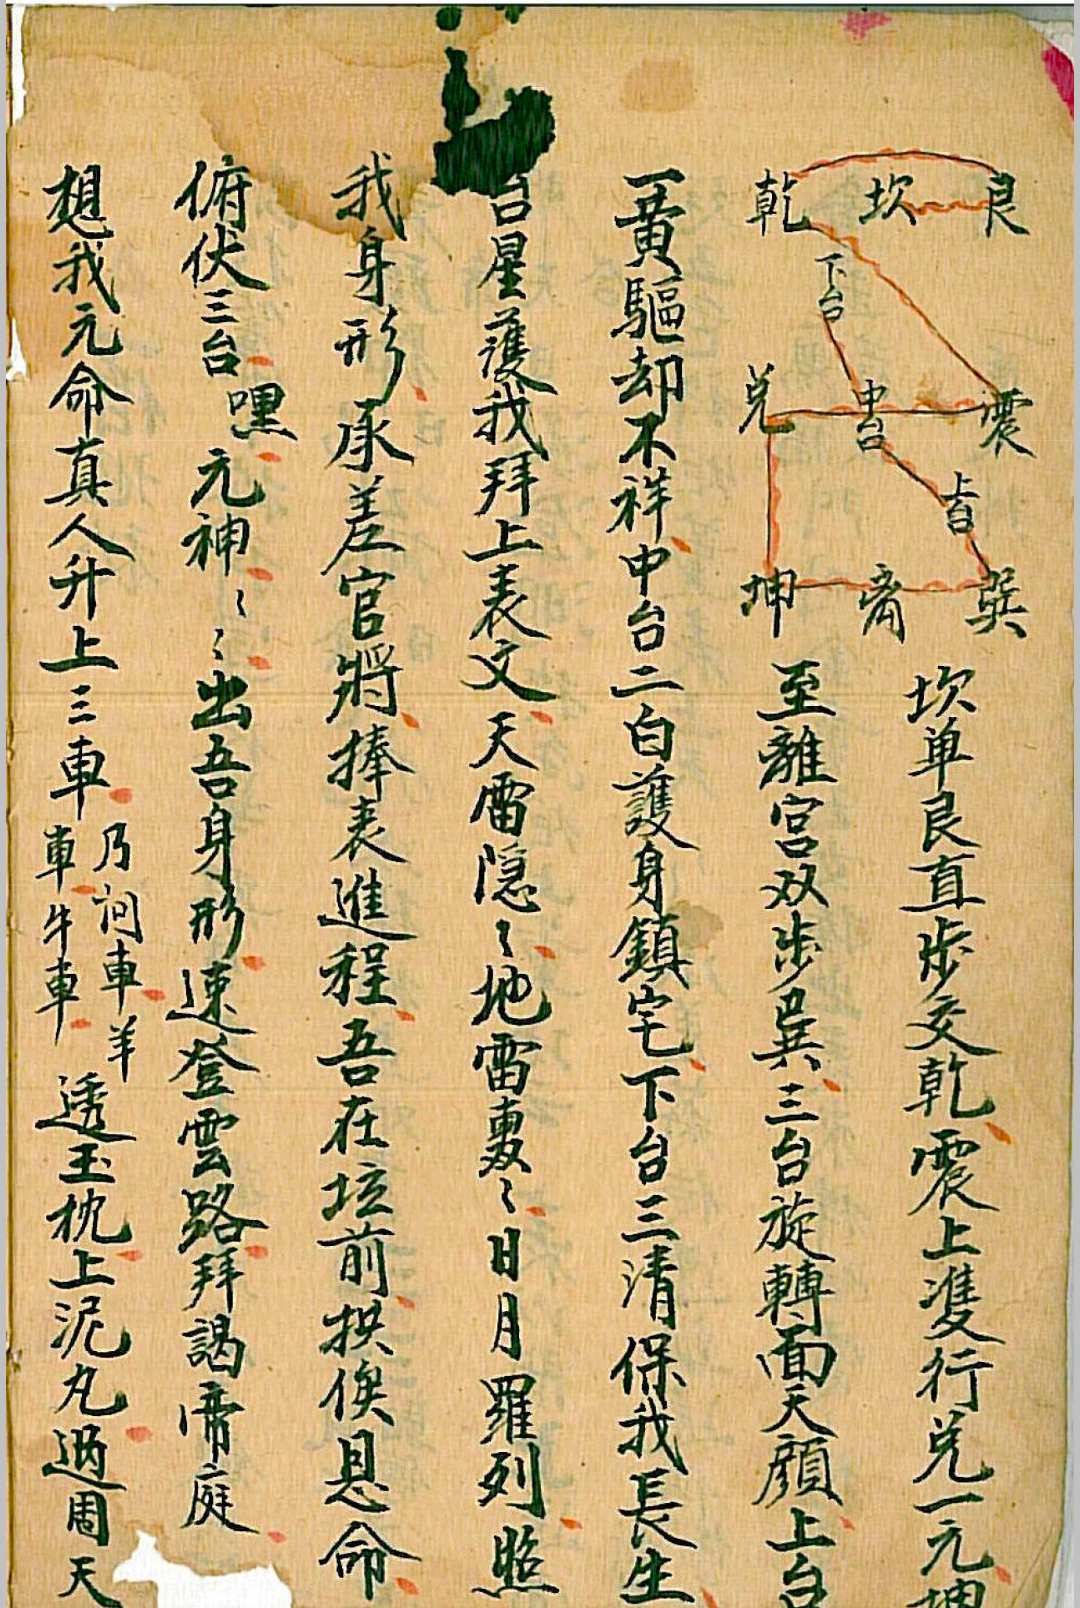 艮
坎
乾
下台
震
中台
兌
上台
巽
离
坤
坎单艮直步交乾震上雙行兌一元坤
至離宮双步巽三台旋轉面天顏上台
一黃驅却不祥中台二白護身鎮宅下台三清保我長生
台星護我拜上表文天雷隐〻地雷轟〻日月羅列照
我身形承差官將捧表進程吾在坛前拱俟恩命
俯伏三台嘿元神〻〻出吾身形速登雲路拜謁帝庭
想我元命真人升上三車
乃詞車羊
車牛車
透玉枕上泥丸過周天